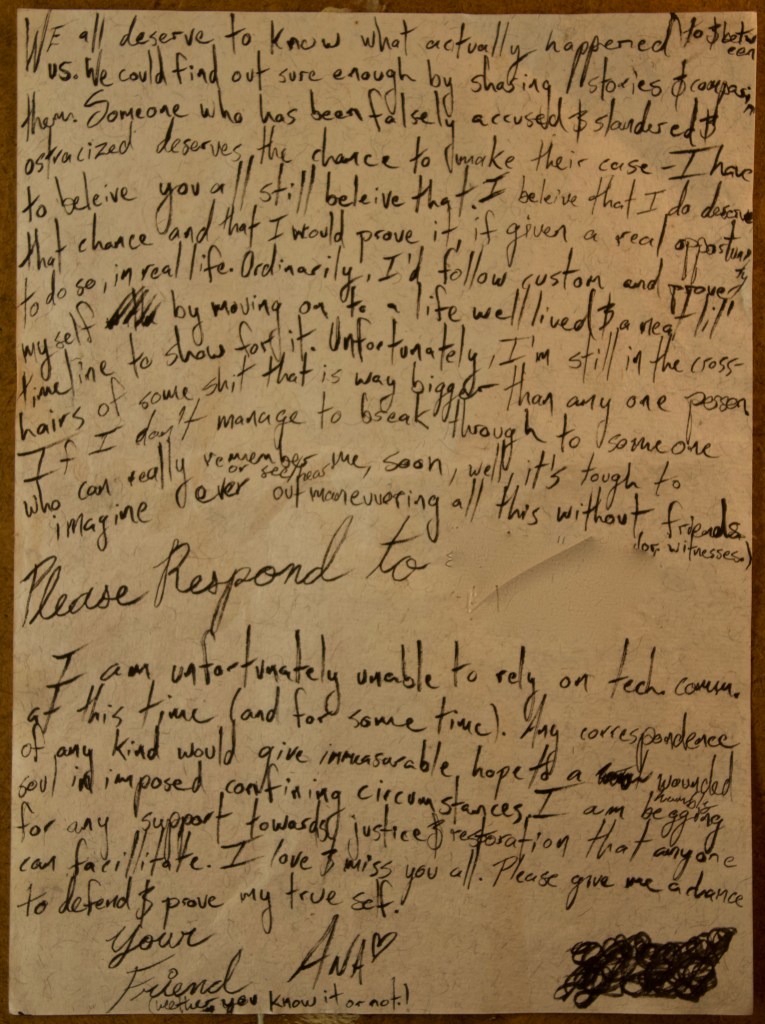 WE all deserve to know what actually happened to $ between
us. We could find out sure enough by sharing stories $ comparin
them. Someone who has been falsely accused $ slandered $
ostracized deserves the chance to make their case - I have
to beleive you all still beleive that. I beleive that I do deserve
that chance and that I would prove it, if given a real opportunity
to do so, in real life. Ordinarily, I'd follow custom and prove
myself by moving on to a life well lived $ a neat lil'
timeline to show for it. Unfortunately, I'm still in the cross-
hairs of some shit that is way bigger than any one person
If I don't manage to break through to someone
who can really remember or see/hear me, soon, well, it's tough to
imagine ever outmaneuvering all this without friends
(or witnesses.)
Please Respond to
I am unfortunately unable to rely on tech. comm.
at this time (and for some time). Any correspondence
of any kind would give immeasurable hope to a wounded
soul in imposed confining circumstances, I am humbly begging
for any support towards justice $ restoration that anyone
can facillitate. I love $ miss you all. Please give me a chance
to defend $ prove my true self.
Your
Friend ANA♡
(wether you know it or not!)